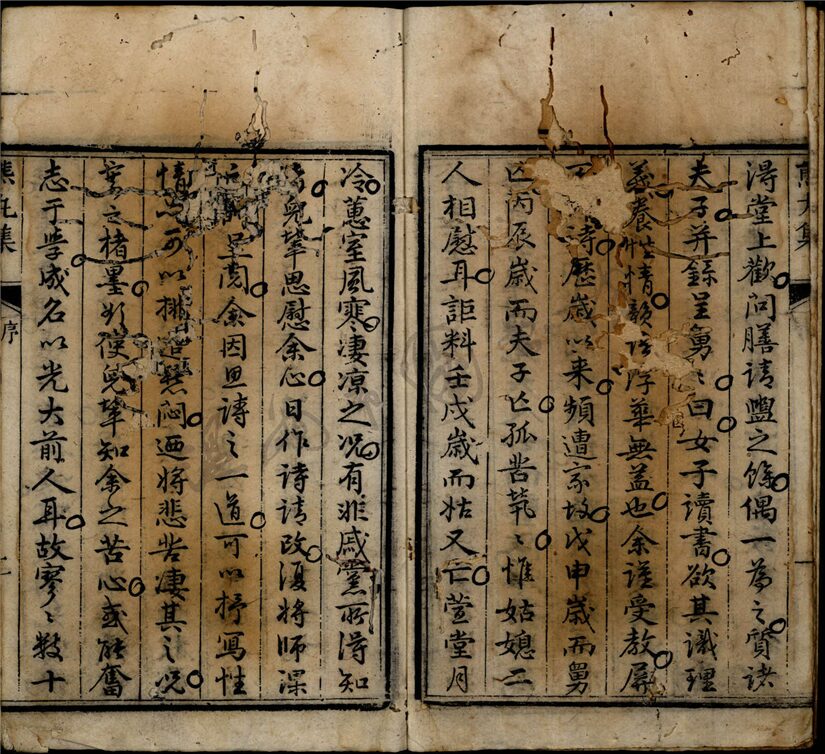 熊丸集
淂堂上歡问膳请盥之餘偶一為之質诸
夫子并錄呈舅〻曰女子讀書欲其識理
義養性情韻浮華無益也余謹受教屏
詩歷歲以来頻遭家故戊申歲而舅
亡丙辰歲而夫子亡孤苦煢〻惟姑媳二
人相慰耳詎料壬戌歲而姑又亡萱堂月
冷蕙室風寒凄凉之况有非戚黨所淂知
兒輩思慰余心日作诗请政復将師課
呈阅余因思詩之一道可以抒寫性
情可以排遣悶迺将悲苦凄其之况
筆之楮墨使兒輩知余之苦心或能奮
志于學成名以光大前人耳故寥〻数十
熊丸集 序